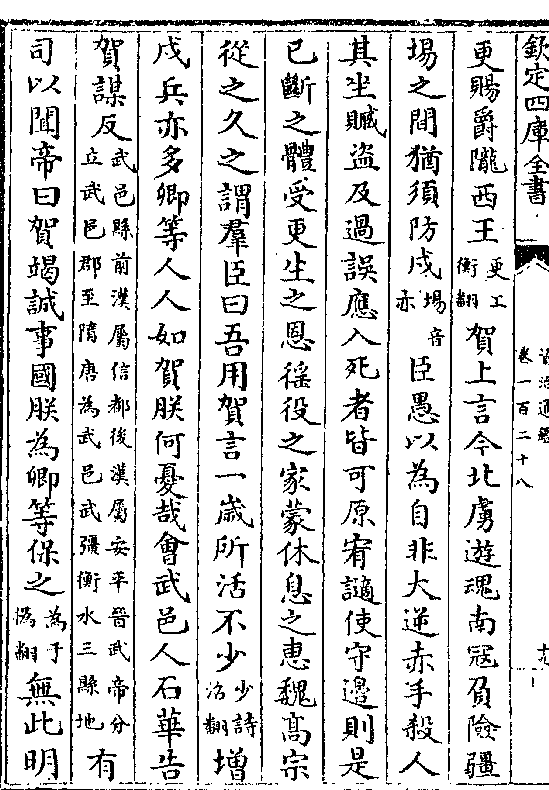 欽定四庫全書
資治通鑑
卷一百二十八
十九
更賜爵隴西王更工衡翻賀上言今北虜遊魂南寇負險疆
場之間猶須防戍場音亦臣愚以為自非大逆赤手殺人
其坐贓盜及過誤應入死者皆可原宥謫使守邊則是
已斷之體受更生之恩徭役之家蒙休息之惠魏高宗
從之久之謂羣臣曰吾用賀言一歲所活不少少詩沼翻增
戍兵亦多卿等人人如賀朕何憂哉會武邑人石華告
賀謀反武邑縣前漢屬信都後漢屬安平晉武帝分立武邑郡至隋唐為武邑武彊衡水三縣地有
司以聞帝曰賀竭誠事國朕為卿等保之為于偽翻無此明